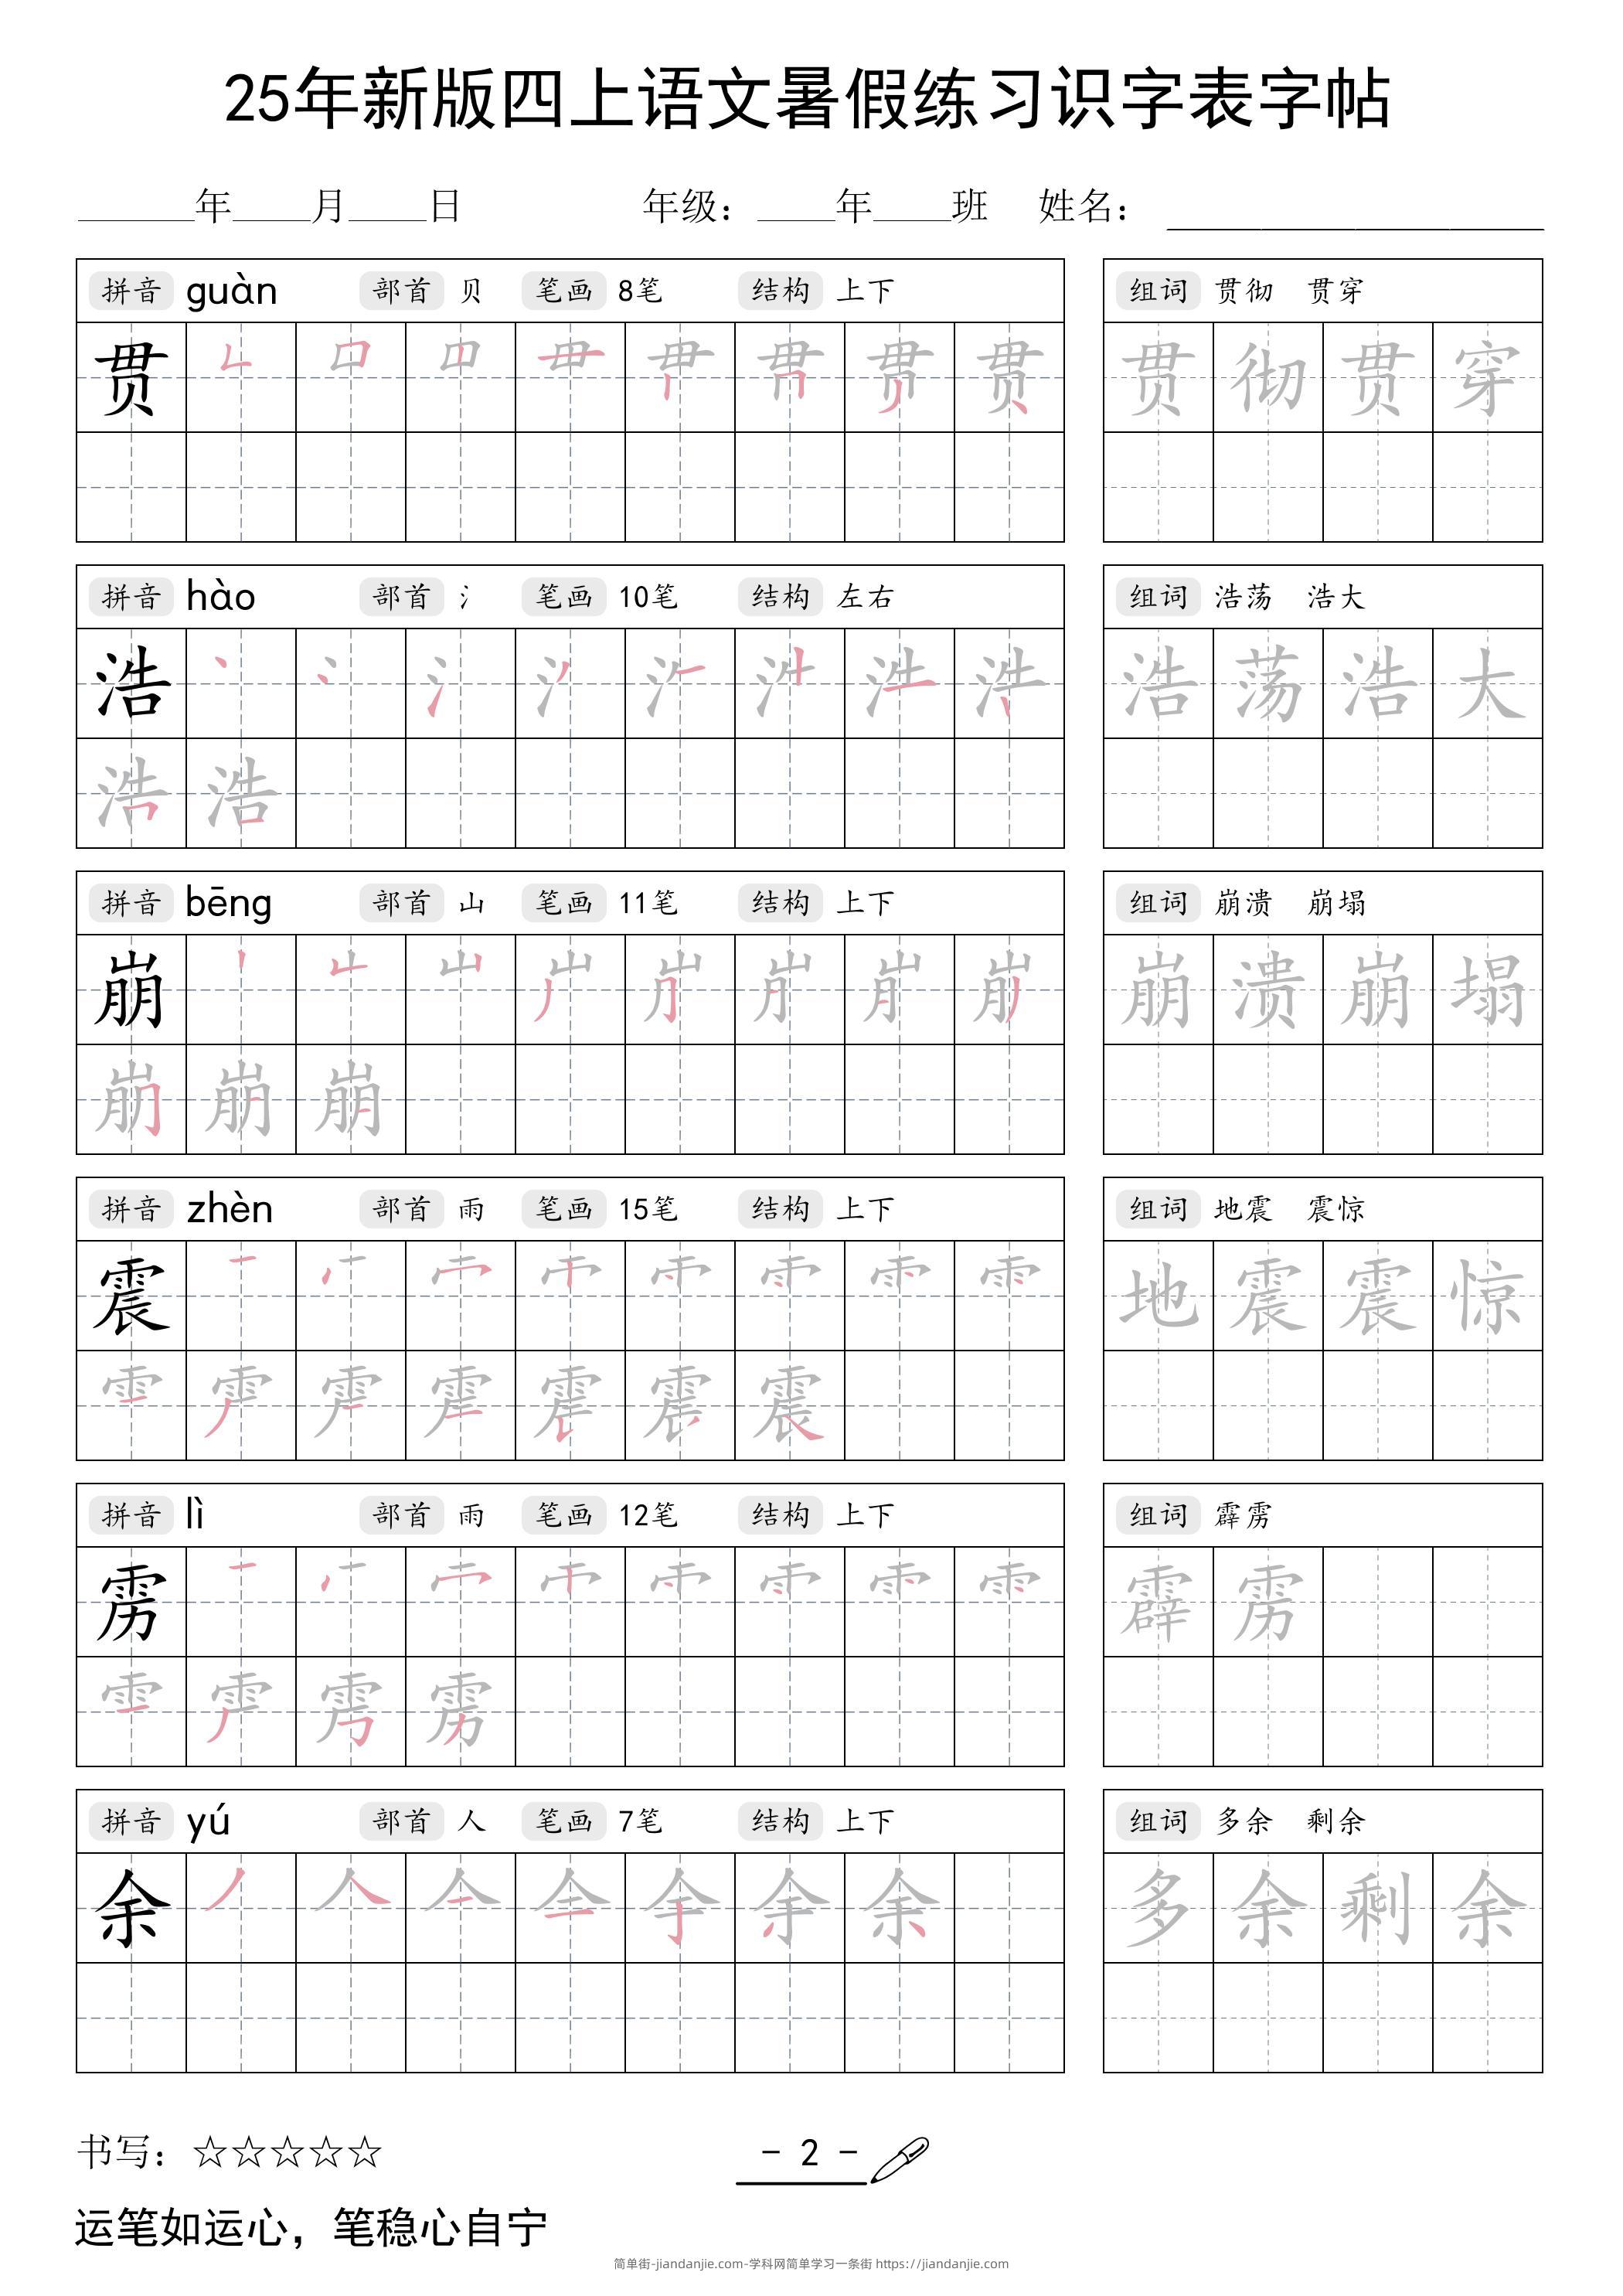 25年新版四上语文暑假练习识字表字帖
______年____月____日 年级：____年____班 姓名：____________________
拼音 guàn 部首 贝 笔画 8笔 结构 上下 组词 贯彻 贯穿
贯 贯 彻 贯 穿
拼音 hào 部首 氵 笔画 10笔 结构 左右 组词 浩荡 浩大
浩 浩 荡 浩 大
浩
拼音 bēng 部首 山 笔画 11笔 结构 上下 组词 崩溃 崩塌
崩 崩 溃 崩 塌
崩
拼音 zhèn 部首 雨 笔画 15笔 结构 上下 组词 地震 震惊
震 地 震 震 惊
震
拼音 lì 部首 雨 笔画 12笔 结构 上下 组词 霹雳
雳 霹 雳
雳
拼音 yú 部首 人 笔画 7笔 结构 上下 组词 多余 剩余
余 余 多 余 剩 余
书写：☆☆☆☆☆ - 2 -
运笔如运心，笔稳心自宁
简单街-jiandanjie.com-学科网简单学习一条街 https://jiandanjie.com